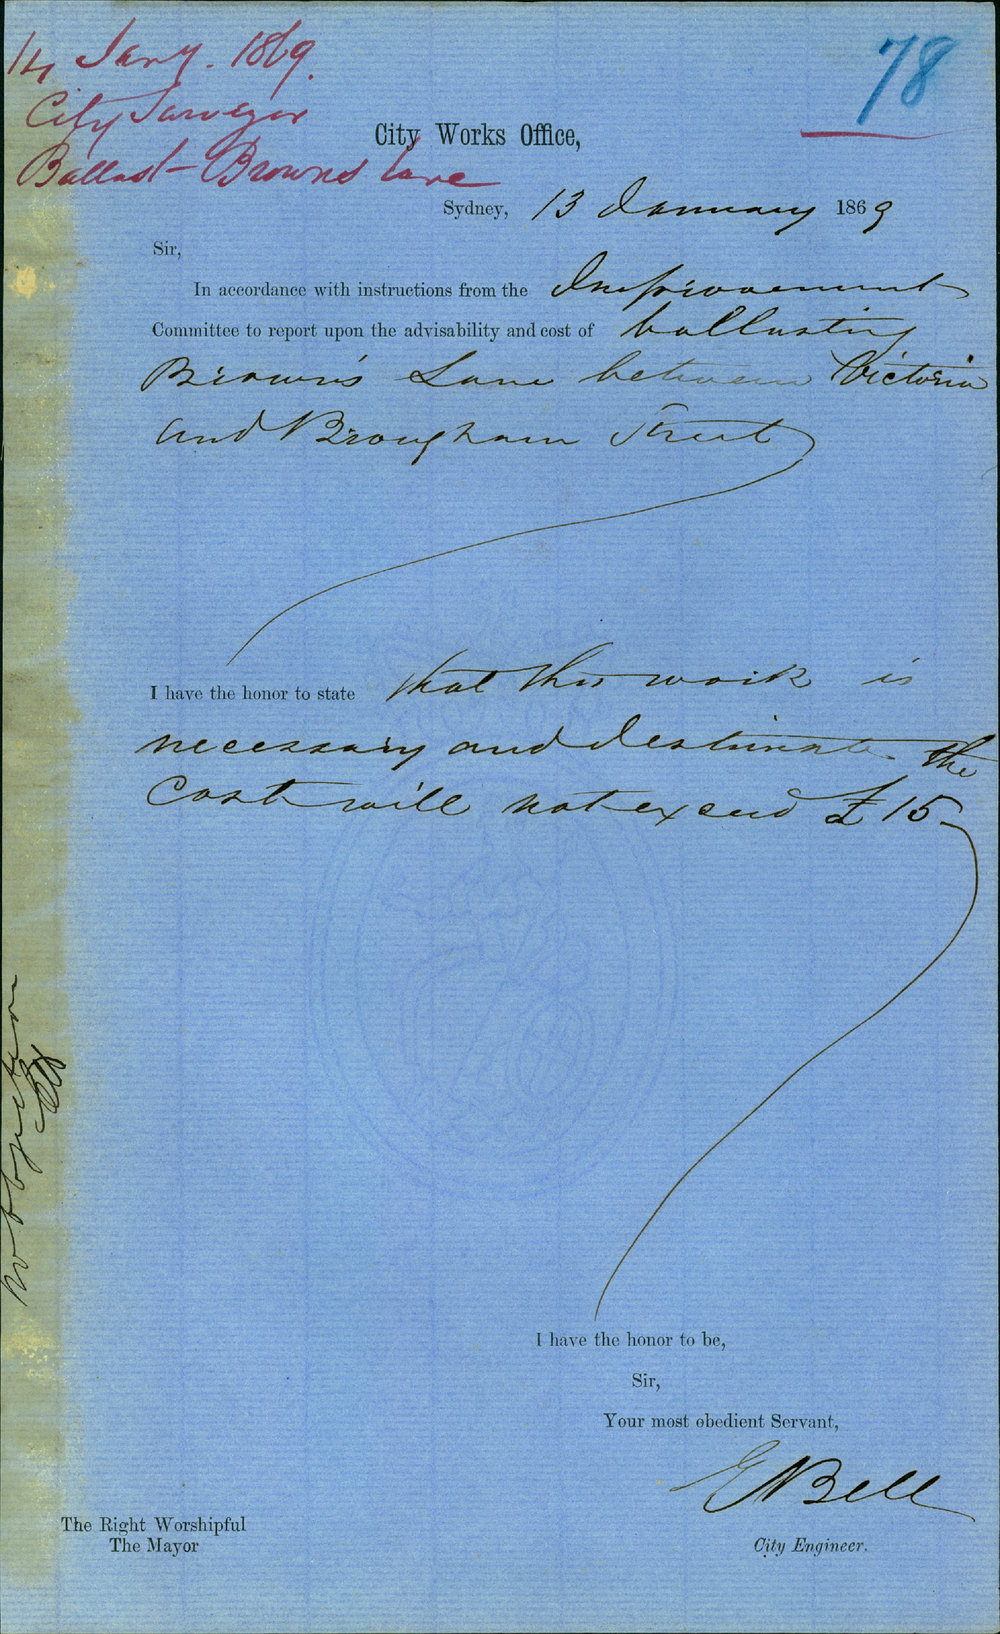 14 Jany. 1869.
City Surveyor
Ballast - Browns Lane
78
City Works Office,
Sydney, 13 January 1869
Sir,
In accordance with instructions from the Improvement
Committee to report upon the advisability and cost of ballasting
Brown's Lane between Victoria
and Brougham Street
I have the honor to state that this work is
necessary and I estimate the
cost will not exceed £15
no objection
I have the honor to be,
Sir,
Your most obedient Servant,
E Bell
The Right Worshipful
The Mayor
City Engineer.